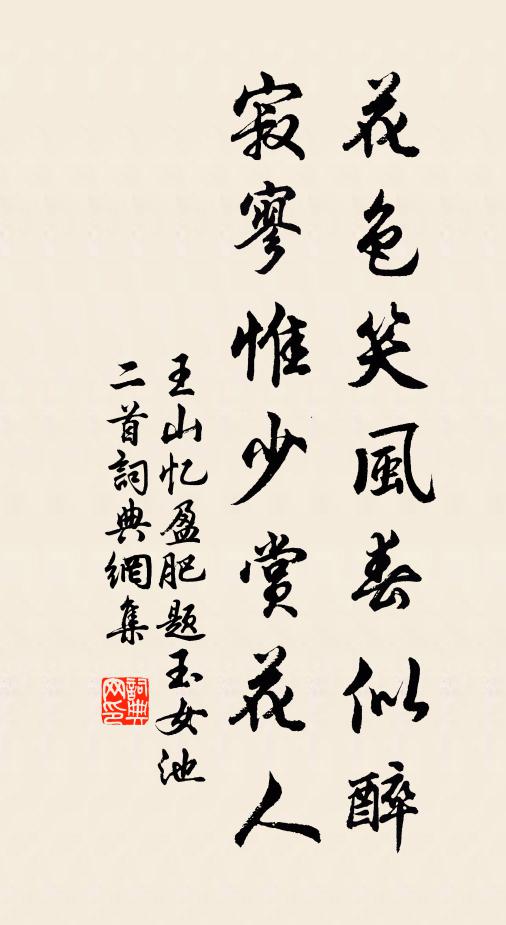 花色笑風春似醉
寂寥惟少賞花人
王山忆盈肥题玉女池
二首詞典網集
詞典
网印